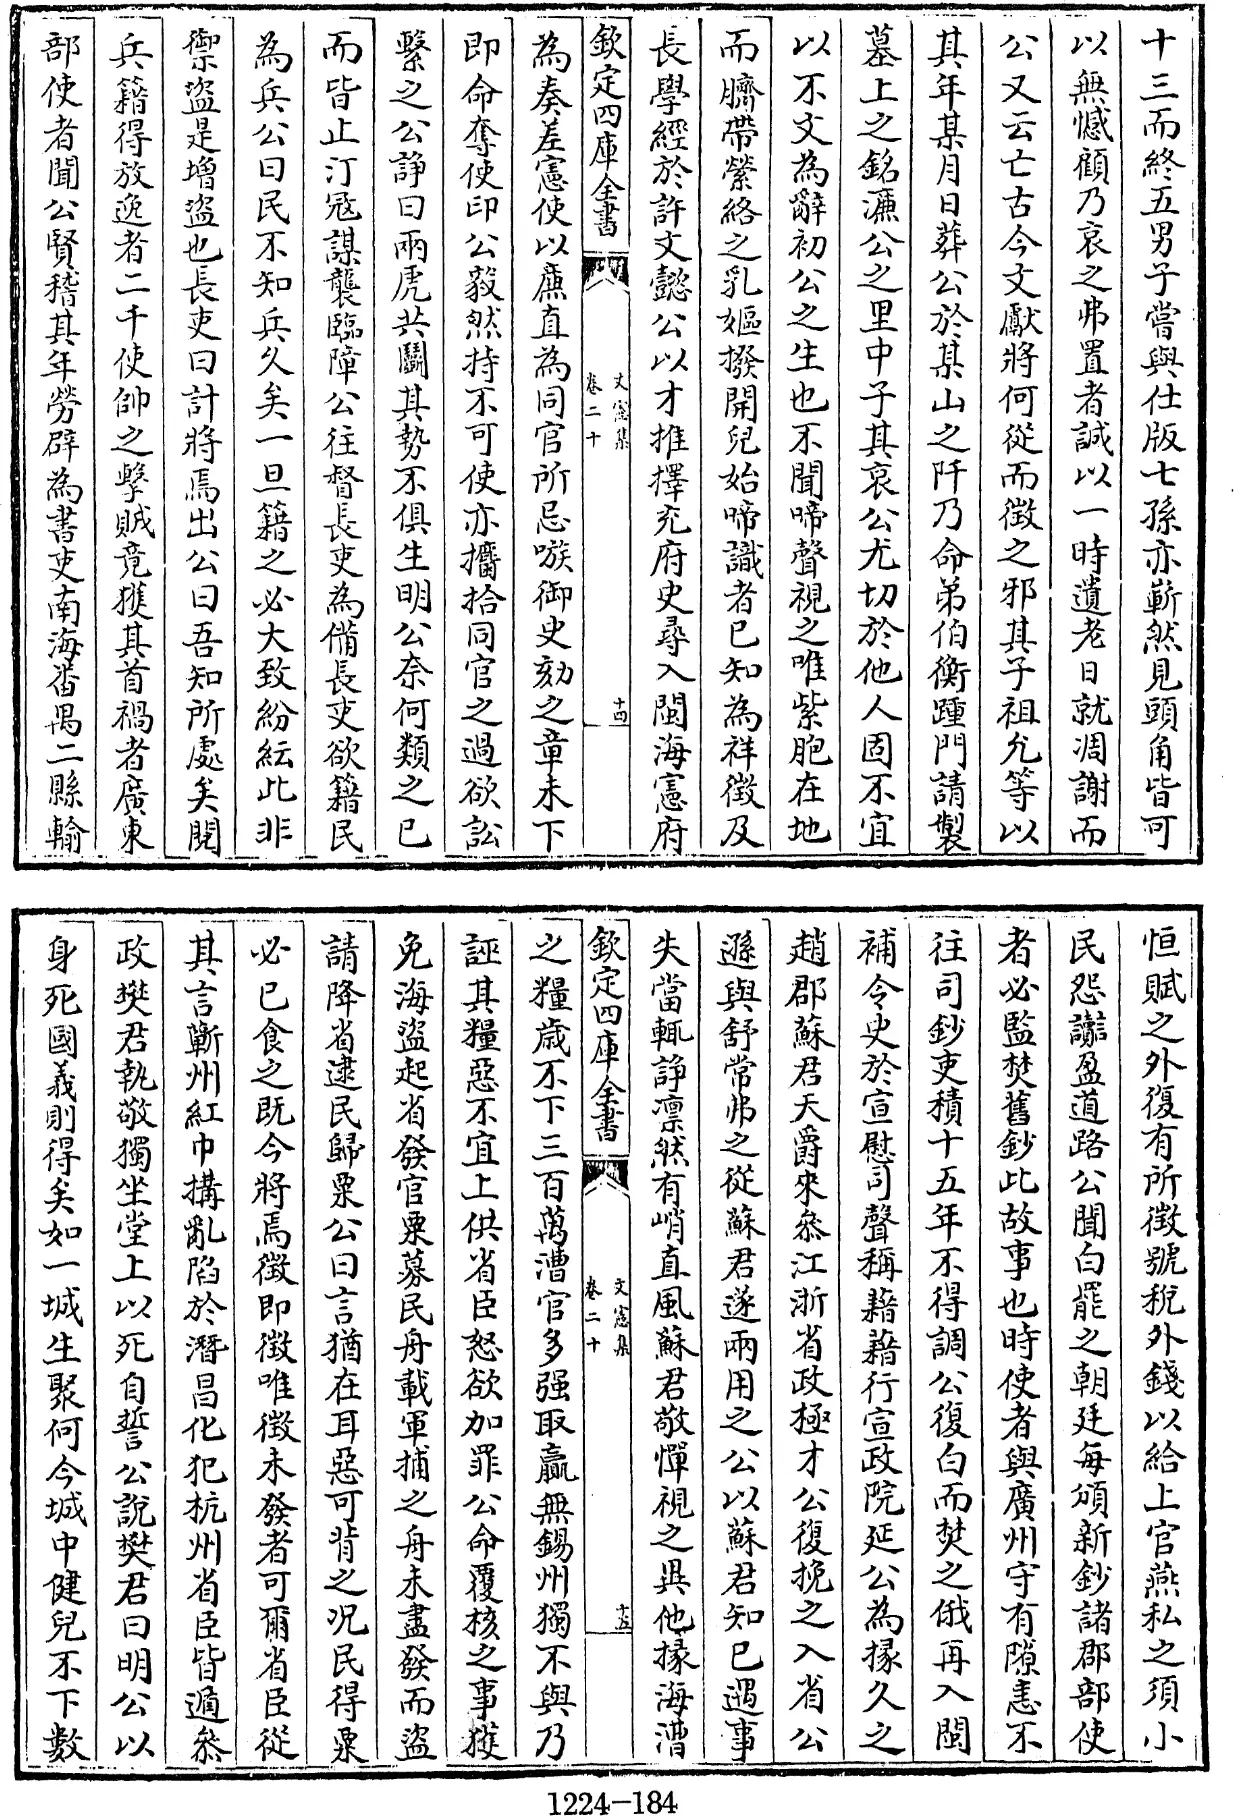 十三而終五男子嘗與仕版七孫亦嶄然見頭角皆可
以無憾顧乃哀之弗置者誠以一時遺老日就凋謝而
公又云亡古今文獻將何從而徵之邪其子祖允等以
其年某月日葬公於某山之阡乃命弟伯衡踵門請製
墓上之銘濂公之里中子其哀公尤切於他人固不宜
以不文為辭初公之生也不聞啼聲視之唯紫胞在地
而臍帶縈絡之乳嫗撥開兒始啼識者已知為祥徵及
長學經於許文懿公以才推擇充府史尋入閩海憲府
欽定四庫全書
文憲集
卷二十
十四
為奏差憲使以廉直為同官所忌嗾御史劾之章未下
即命奪使印公毅然持不可使亦攟拾同官之過欲訟
繫之公諍曰兩虎共鬭其勢不俱生明公奈何類之已
而皆止汀冦謀襲臨障公往督長吏為備長吏欲籍民
為兵公曰民不知兵久矣一旦籍之必大致紛紜此非
禦盜是增盜也長吏曰計將焉出公曰吾知所處矣閱
兵籍得放逸者二千使帥之擊賊竟獲其首禍者廣東
部使者聞公賢稽其年勞辟為書吏南海番禺二縣輸
恒賦之外復有所徵號稅外錢以給上官燕私之須小
民怨讟盈道路公聞白罷之朝廷每頒新鈔諸郡部使
者必監焚舊鈔此故事也時使者與廣州守有隙恚不
往司鈔吏積十五年不得調公復白而焚之俄再入閩
補令史於宣慰司聲稱藉藉行宣政院延公為掾久之
趙郡蘇君天爵來叅江浙省政極才公復挽之入省公
遜與舒常弗之從蘇君遂兩用之公以蘇君知已遇事
失當輒諍凛然有峭直風蘇君敬憚視之異他掾海漕
欽定四庫全書
文憲集
卷二十
十五
之糧歲不下三百萬漕官多强取贏無錫州獨不與乃
誣其糧惡不宜上供省臣怒欲加罪公命覆核之事獲
免海盜起省發官粟募民舟載軍捕之舟未盡發而盜
請降省逮民歸粟公曰言猶在耳惡可背之况民得粟
必已食之既今將焉徵即徵唯徵未發者可爾省臣從
其言蘄州紅巾搆亂陷於潛昌化犯杭州省臣皆遁叅
政樊君執敬獨坐堂上以死自誓公說樊君曰明公以
身死國義則得矣如一城生聚何今城中健兒不下數
1224-184